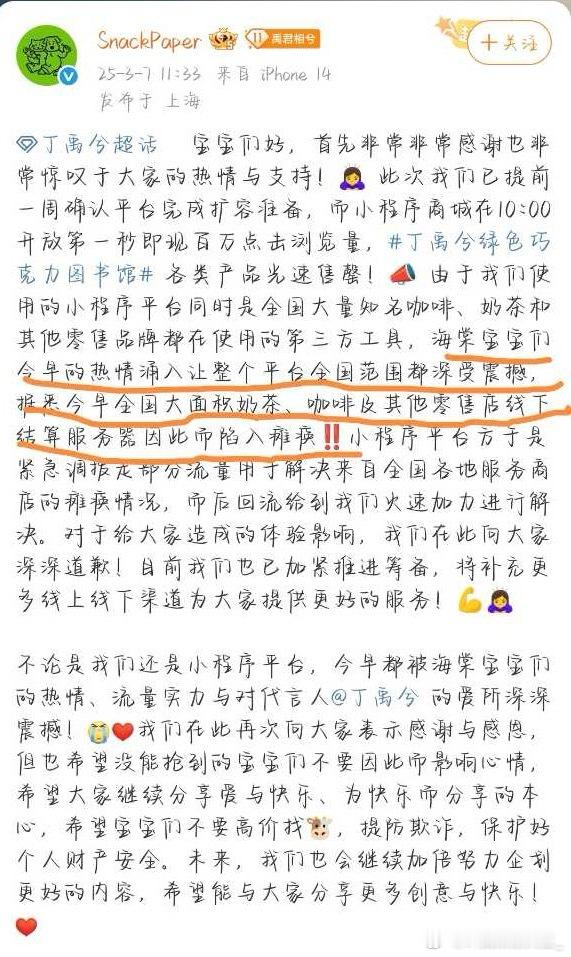 SnackPaper 禹君相兮
+关注
25-3-7 11:33 来自 iPhone 14
发布于 上海
丁禹兮超话 宝宝们好，首先非常非常感谢也非
常惊叹于大家的热情与支持！🙇‍♀️ 此次我们已提前
一周确认平台完成扩容准备，而小程序商城在10:00
开放第一秒即现百万点击浏览量，#丁禹兮绿色巧
克力图书馆# 各类产品光速售罄！📣 由于我们使
用的小程序平台同时是全国大量知名咖啡、奶茶和
其他零售品牌都在使用的第三方工具，海棠宝宝们
今早的热情涌入让整个平台全国范围都深受震撼，
据悉今早全国大面积奶茶、咖啡及其他零售店线下
结算服务器因此而陷入瘫痪‼️小程序平台方于是
紧急调拨走部分流量用于解决来自全国各地服务商
店的瘫痪情况，而后回流给到我们火速加力进行解
决。对于给大家造成的体验影响，我们在此向大家
深深道歉！目前我们也已加紧推进筹备，将补充更
多线上线下渠道为大家提供更好的服务！💪🙇‍♀️
不论是我们还是小程序平台，今早都被海棠宝宝们
的热情、流量实力与对代言人@丁禹兮 的爱所深深
震撼！😭❤️我们在此再次向大家表示感谢与感恩，
但也希望没能抢到的宝宝们不要因此而影响心情，
希望大家继续分享爱与快乐、为快乐而分享的本
心，希望宝宝们不要高价找🐮，提防欺诈，保护好
个人财产安全。未来，我们也会继续加倍努力企划
更好的内容，希望能与大家分享更多创意与快乐！
❤️